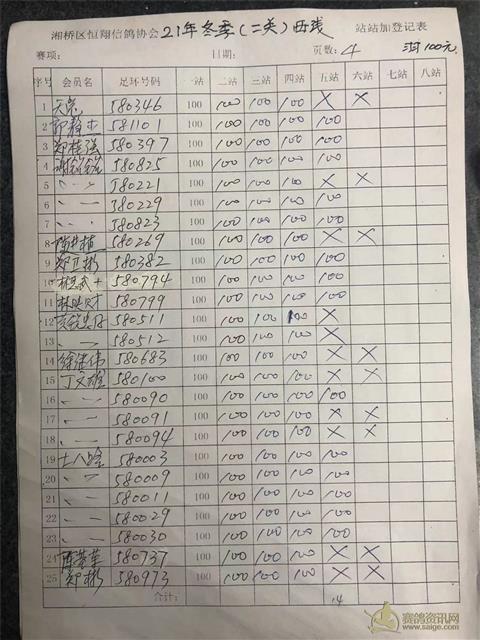 湘桥区恒翔信鸽协会21年冬季(二关)西线 站站加登记表
赛项: 日期: 页数: 4 100元
序号 会员名 足环号码 一站 二站 三站 四站 五站 六站 七站 八站
1 580346 100 100 100 100 X X
2 581101 100 100 100 100 100
3 郑桂强 580397 100 100 100 100 100
4 580825 100 100 100 100 100
5 〃 580221 100 100 100 100 X X
6 〃 580229 100 100 100 100 100
7 〃 580823 100 100 100 100 100
8 580269 100 100 100 100 X X
9 郑卫彬 580382 100 100 100 100 100
10 580794 100 100 100 100 100
11 580799 100 100 100 100 100
12 580511 100 100 100 100 X
13 〃 580512 100 100 100 100 X
14 徐继伟 580683 100 100 100 100 X X
15 丁文雄 580100 100 100 100 100 X X
16 〃 580090 100 100 100 100 100
17 〃 580091 100 100 100 100 X X
18 〃 580094 100 100 100 100 X X
19 580003 100 100 100 100 100
20 〃 580009 100 100 100 100 100
21 〃 580011 100 100 100 100 100
22 〃 580029 100 100 100 100 100
23 〃 580030 100 100 100 100 100
24 580737 100 100 100 100 X X
25 郑彬 580973 100 100 100 100 X X
合计: 14
赛鸽资讯网
www.saige.com